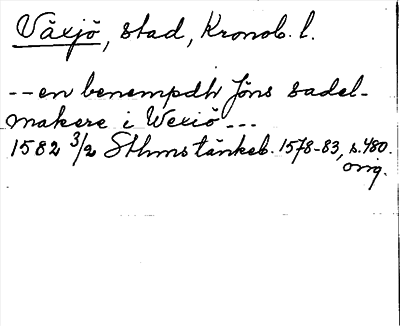 Växjö, stad, Kronob. l.
--en benempdh Jöns sadel-
makere i Wexiö ---
1582 3/2 Sthms tänkeb. 1578-83, s. 480.
orig.